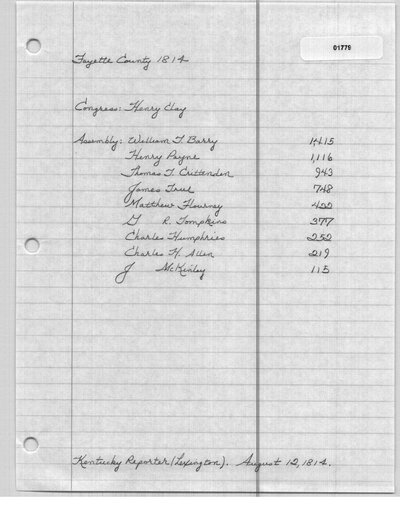 01779
Fayette County 1814
Congress: Henry Clay
Assembly: William T. Barry 1415
Henry Payne 1,116
Thomas T. Crittenden 943
James True 748
Matthew Flourney 422
G R. Tompkins 377
Charles Humphries 252
Charles H. Allen 219
J McKinley 115
Kentucky Reporter (Lexington). August 12, 1814.